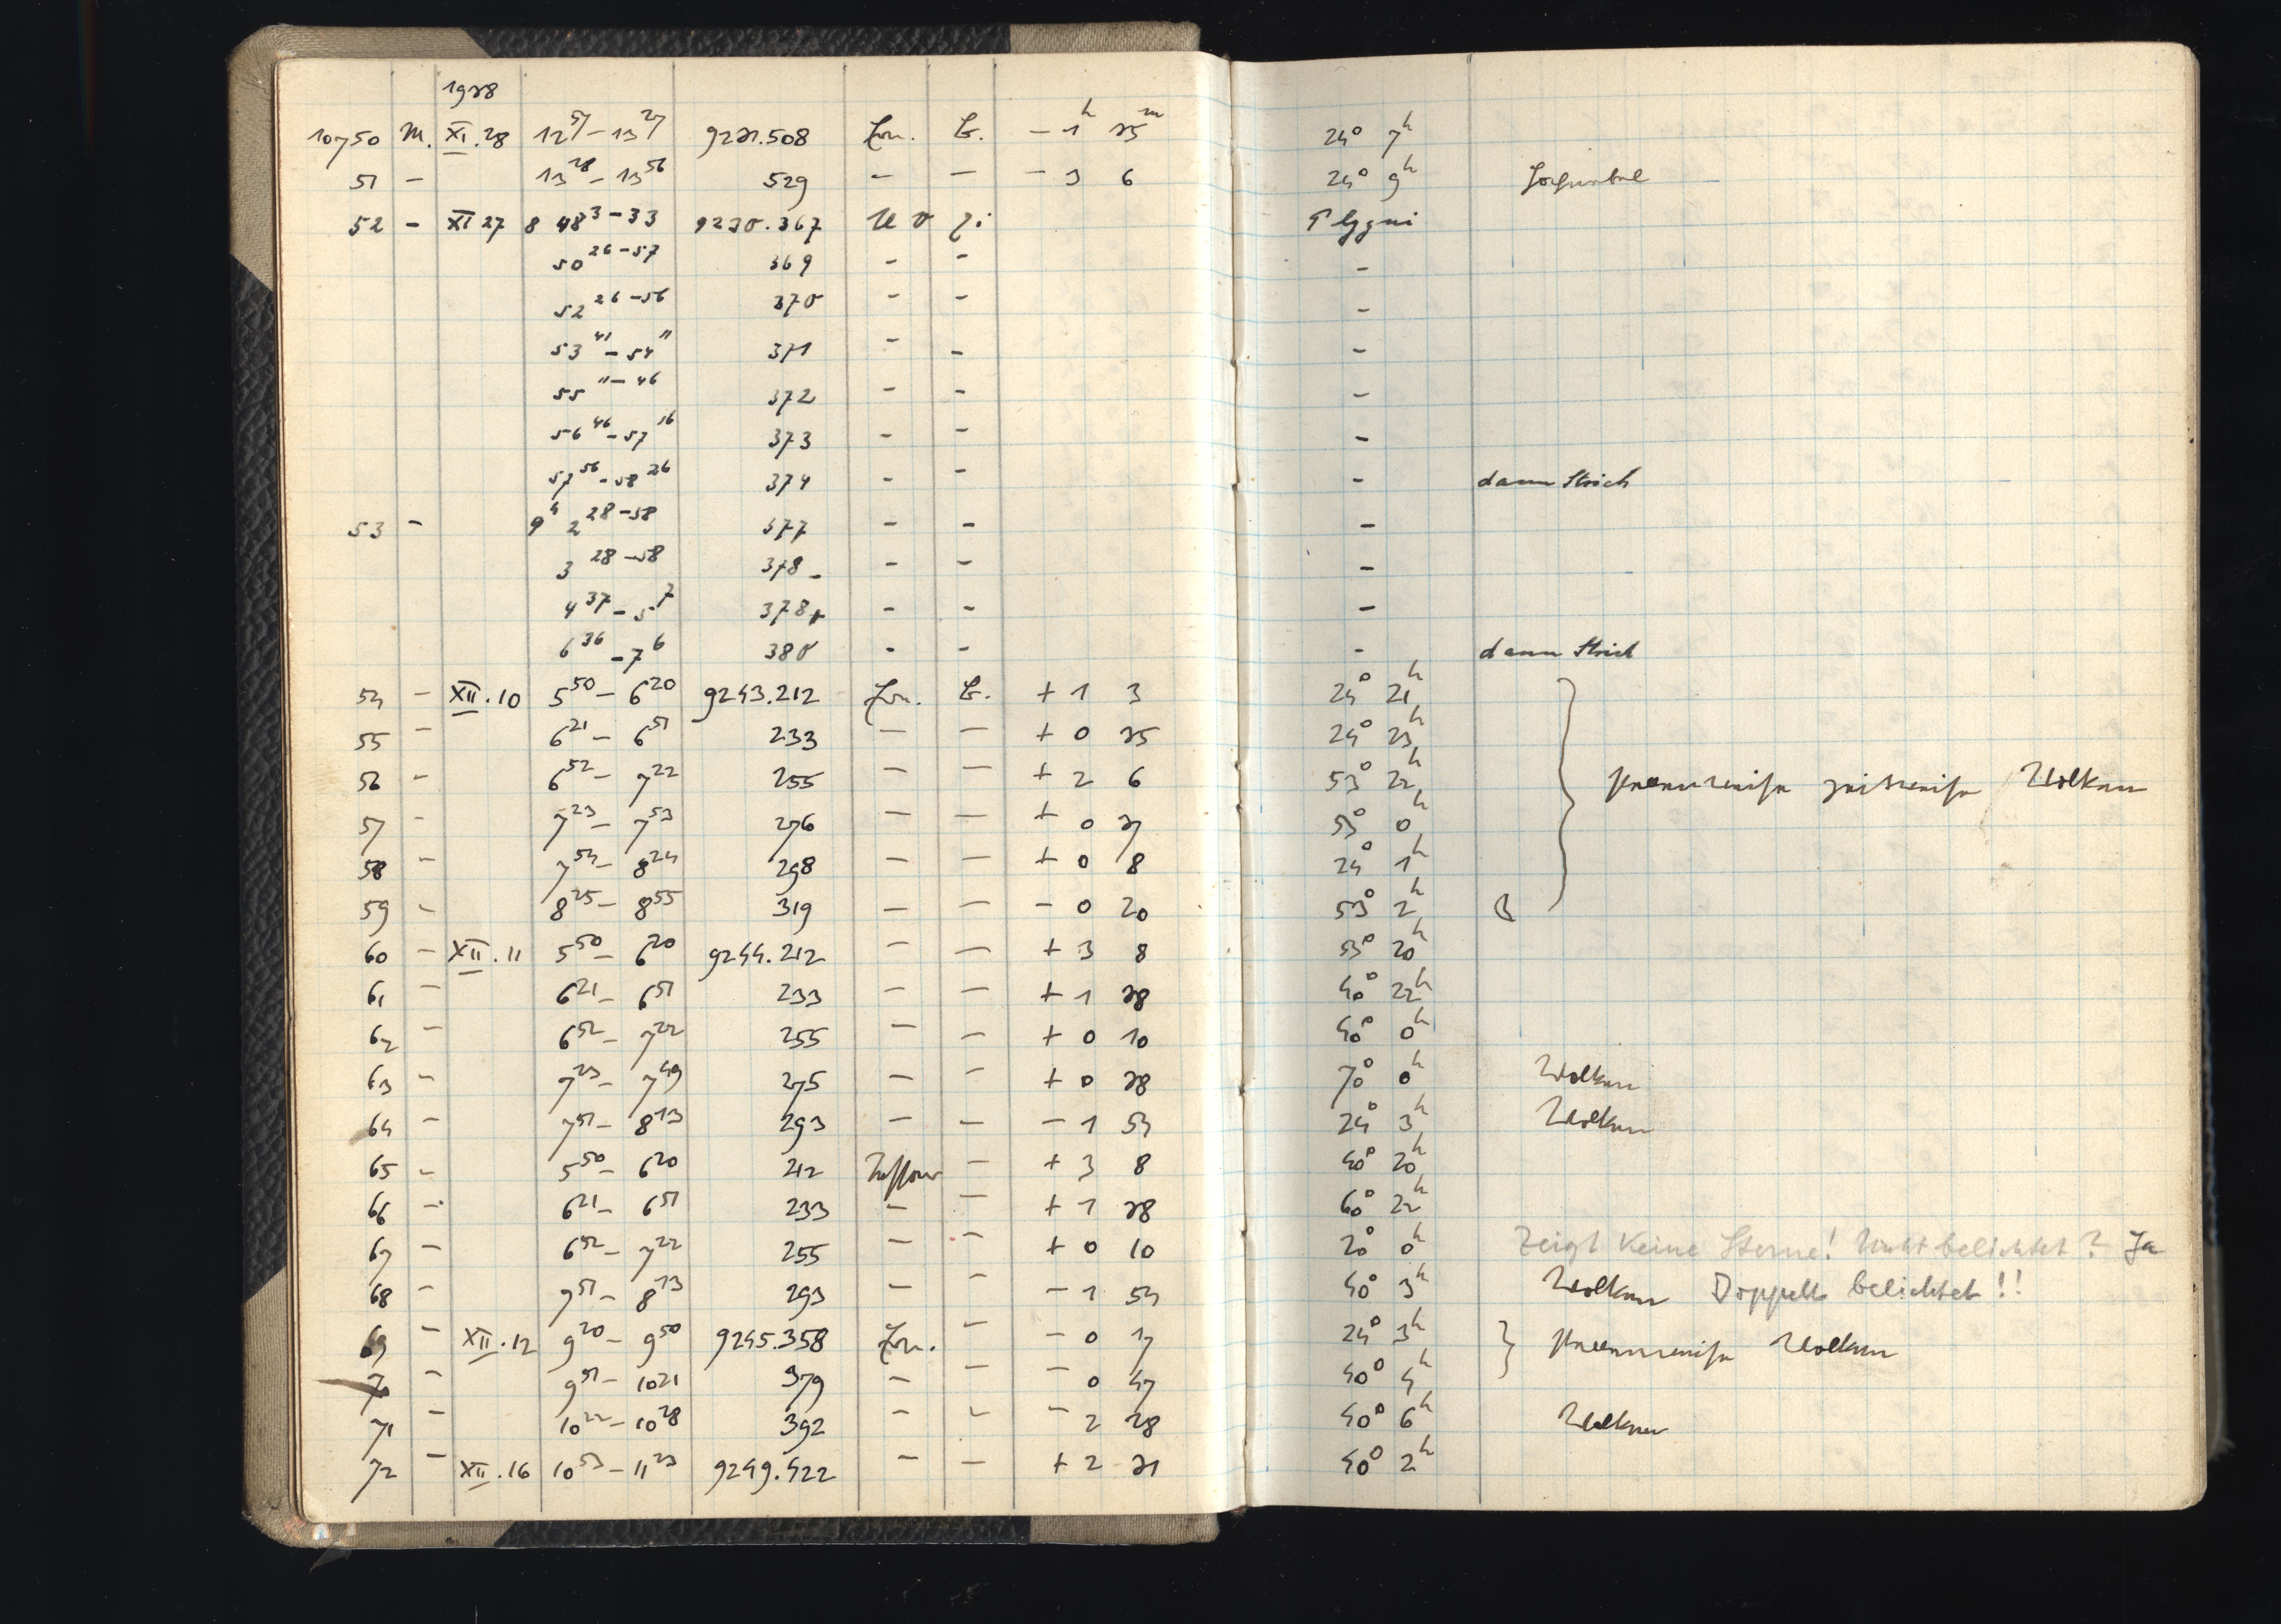 1928
10750 M. XI.28 12 57 – 13 27 9221.508 Zon. – 1 h 25 m 24° 7 h
51 – 13 28 – 13 56 529 – – – 3 6 24° 9 h
52 – XI 27 8 48 3–33 9220.367 UV Zi
50 26–57 369 – – –
52 26–56 370 – – –
53 41 – 54 11 371 – – –
55 11–46 372 – – –
56 46 – 57 16 373 – – –
57 56 – 58 26 374 – – – dann Strich
53 – 9 h 2 28–58 377 – – –
3 28–58 378– – – –
4 37 – 5 7 378+ – – –
6 36 – 7 6 380 – – – dann Strich
54 – XII.10 5 50 – 6 20 9243.212 Zon. + 1 3 24° 21 h
55 – 6 21 – 6 51 233 – – + 0 25 24° 23 h
56 – 6 52 – 7 22 255 – – + 2 6 53° 22 h } Wolken
57 – 7 23 – 7 53 276 – – + 0 27 53° 0 h
58 – 7 54 – 8 24 298 – – + 0 8 24° 1 h
59 – 8 25 – 8 55 319 – – – 0 20 53° 2 h
60 – XII.11 5 50 – 6 20 9244.212 – – + 3 8 53° 20 h
61 – 6 21 – 6 51 233 – – + 1 28 40° 22 h
62 – 6 52 – 7 22 255 – – + 0 10 40° 0 h
63 – 7 23 – 7 49 275 – – + 0 28 70° 0 h Wolken
64 – 7 51 – 8 13 293 – – – 1 54 24° 3 h Wolken
65 – 5 50 – 6 20 212 – + 3 8 40° 20 h
66 – 6 21 – 6 51 233 – – + 1 28 60° 22 h
67 – 6 52 – 7 22 255 – – + 0 10 20° 0 h Zeigt keine Sterne! Nicht belichtet? Ja
68 – 7 51 – 8 13 293 – – – 1 54 40° 3 h Wolken Doppelt belichtet!!
69 – XII.12 9 20 – 9 50 9245.358 Zon. – – 0 17 24° 3 h } Wolken
70 – 9 51 – 10 21 379 – – – 0 47 40° 4 h
71 – 10 22 – 10 28 392 – – – 2 28 40° 6 h Wolken
72 – XII.16 10 53 – 11 23 9249.422 – – + 2 21 40° 2 h